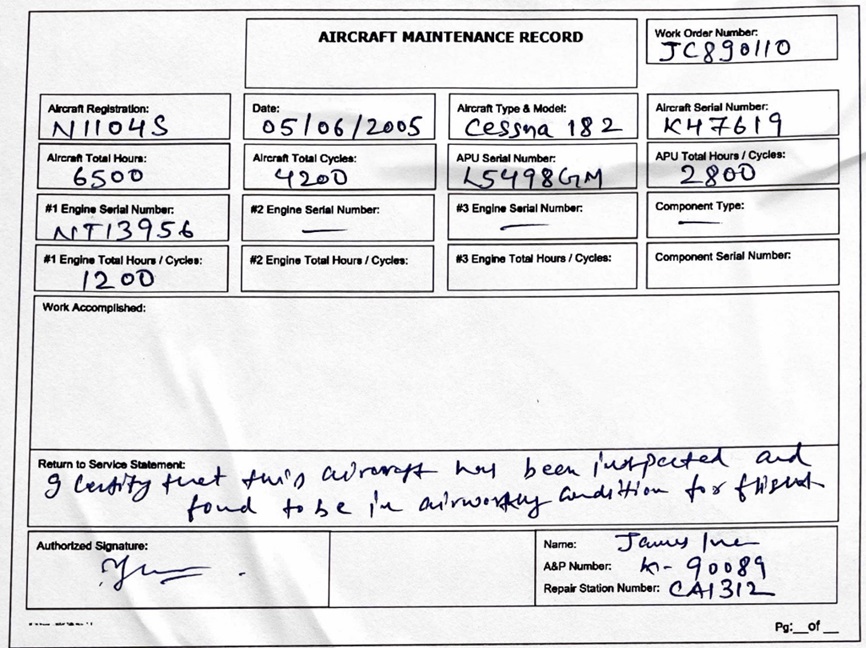 AIRCRAFT MAINTENANCE RECORD
Work Order Number:
JC890110
Aircraft Registration:
N1104S
Date:
05/06/2005
Aircraft Type & Model:
Cessna 182
Aircraft Serial Number:
K47619
Aircraft Total Hours:
6500
Aircraft Total Cycles:
4200
APU Serial Number:
L5498GM
APU Total Hours / Cycles:
2800
#1 Engine Serial Number:
NT13956
#2 Engine Serial Number:
—
#3 Engine Serial Number:
—
Component Type:
—
#1 Engine Total Hours / Cycles:
1200
#2 Engine Total Hours / Cycles:
#3 Engine Total Hours / Cycles:
Component Serial Number:
Work Accomplished:
Return to Service Statement:
I certify that this aircraft has been inspected and
found to be in airworthy condition for flight
Authorized Signature:
Name: James
A&P Number: 90089
Repair Station Number: CA1312
Pg:__of __